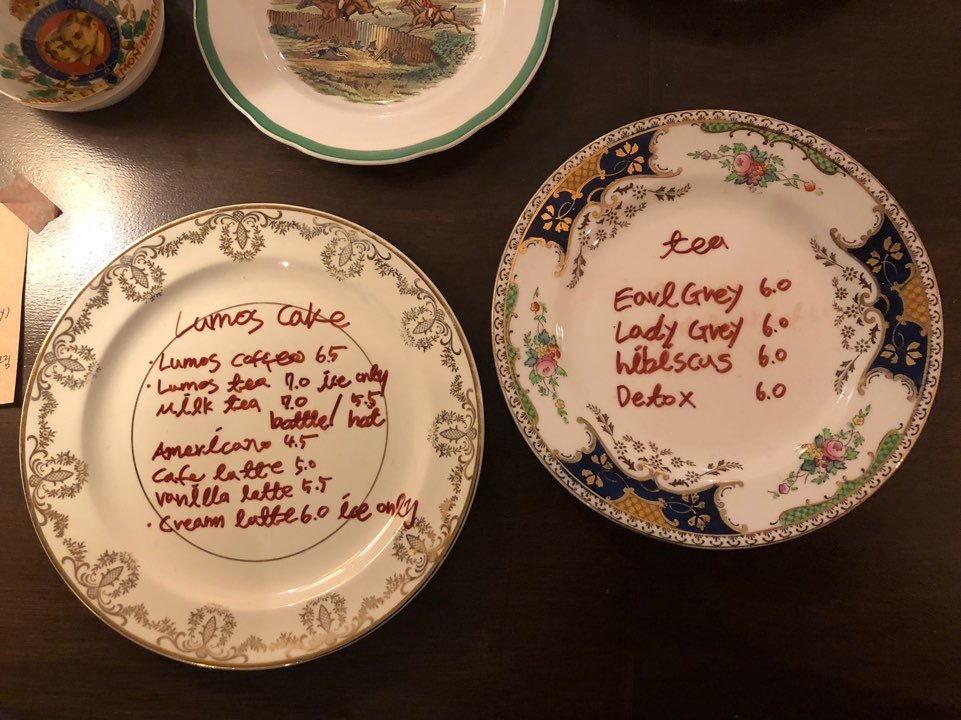 Lumos Cake
· Lumos coffee 65
· Lumos tea 7.0 ice only
milk tea 7.0 / 5.5
bottle / hot
Americano 4.5
Cafe latte 5.0
vanilla latte 5.5
· Cream latte 6.0 ice only
tea
Earl Grey 6.0
Lady Grey 6.0
hibiscus 6.0
Detox 6.0